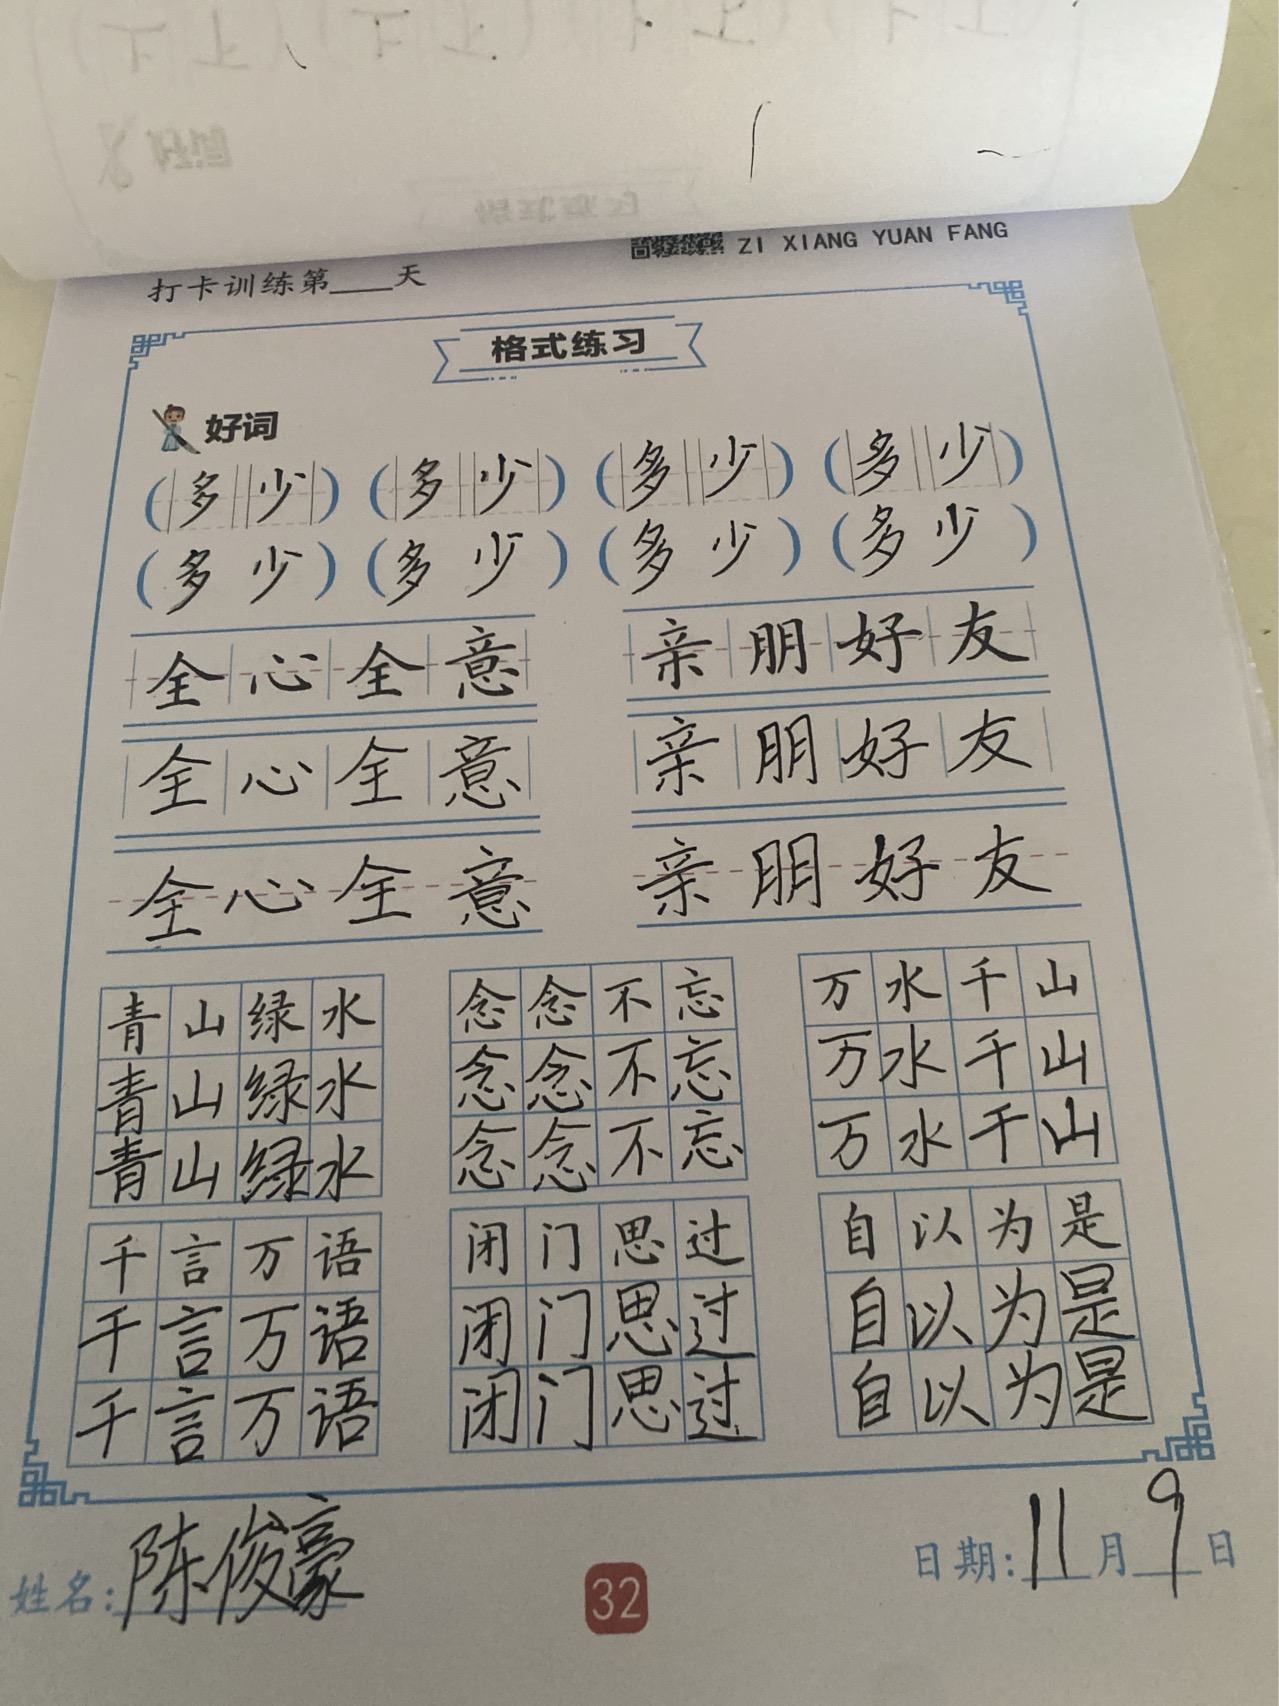 ZI XIANG YUAN FANG
打卡训练第____天
格式练习
好词
(多少) (多少) (多少) (多少)
(多少) (多少) (多少) (多少)
全心全意 亲朋好友
全心全意 亲朋好友
全心全意 亲朋好友
青山绿水 念念不忘 万水千山
青山绿水 念念不忘 万水千山
青山绿水 念念不忘 万水千山
千言万语 闭门思过 自以为是
千言万语 闭门思过 自以为是
千言万语 闭门思过 自以为是
姓名:陈俊豪 32 日期:11月9日